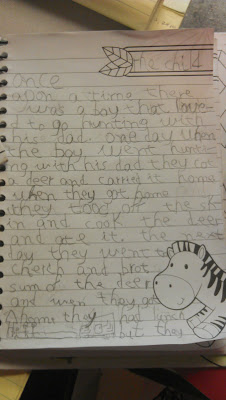 The child
once
apon a time there
was a boy that love
d to go hunting with
his dad. one day when
the boy went hunt
ing with his dad they cot
a deer and carried it home
when they got home
they took of the sk
in and cook the deer
and ate it. the next
day they went to
cherch and brot
sum of the deer
and wen they got
home they had lunch
but they